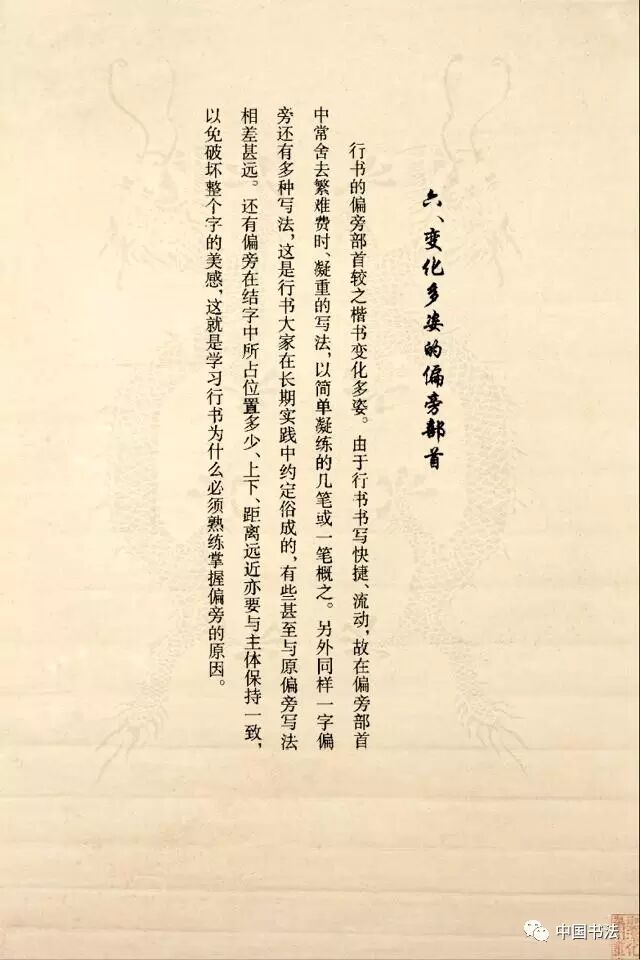 六、变化多姿的偏旁部首
行书的偏旁部首较之楷书变化多姿。由于行书书写快捷、流动，故在偏旁部首
中常舍去繁难费时、凝重的写法，以简单凝练的几笔或一笔概之。另外同样一字偏
旁还有多种写法，这是行书大家在长期实践中约定俗成的，有些甚至与原偏旁写法
相差甚远。还有偏旁在结字中所占位置多少、上下、距离远近亦要与主体保持一致，
以免破坏整个字的美感，这就是学习行书为什么必须熟练掌握偏旁的原因。
中国书法